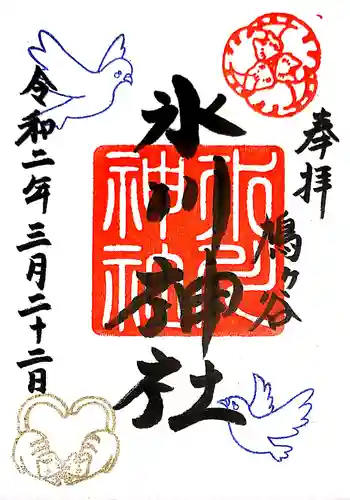 奉拝
鳩ヶ谷
氷川神社
氷川神社
令和二年三月二十二日